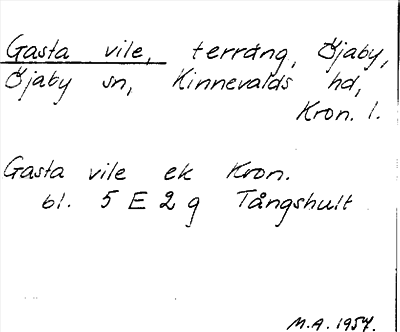 Gasta vile, terräng, Öjaby,
Öjaby sn, Kinnevalds hd,
Kron. l.
Gasta vile ek Kron.
bl. 5 E 2 g Tångshult
M.A. 1957.